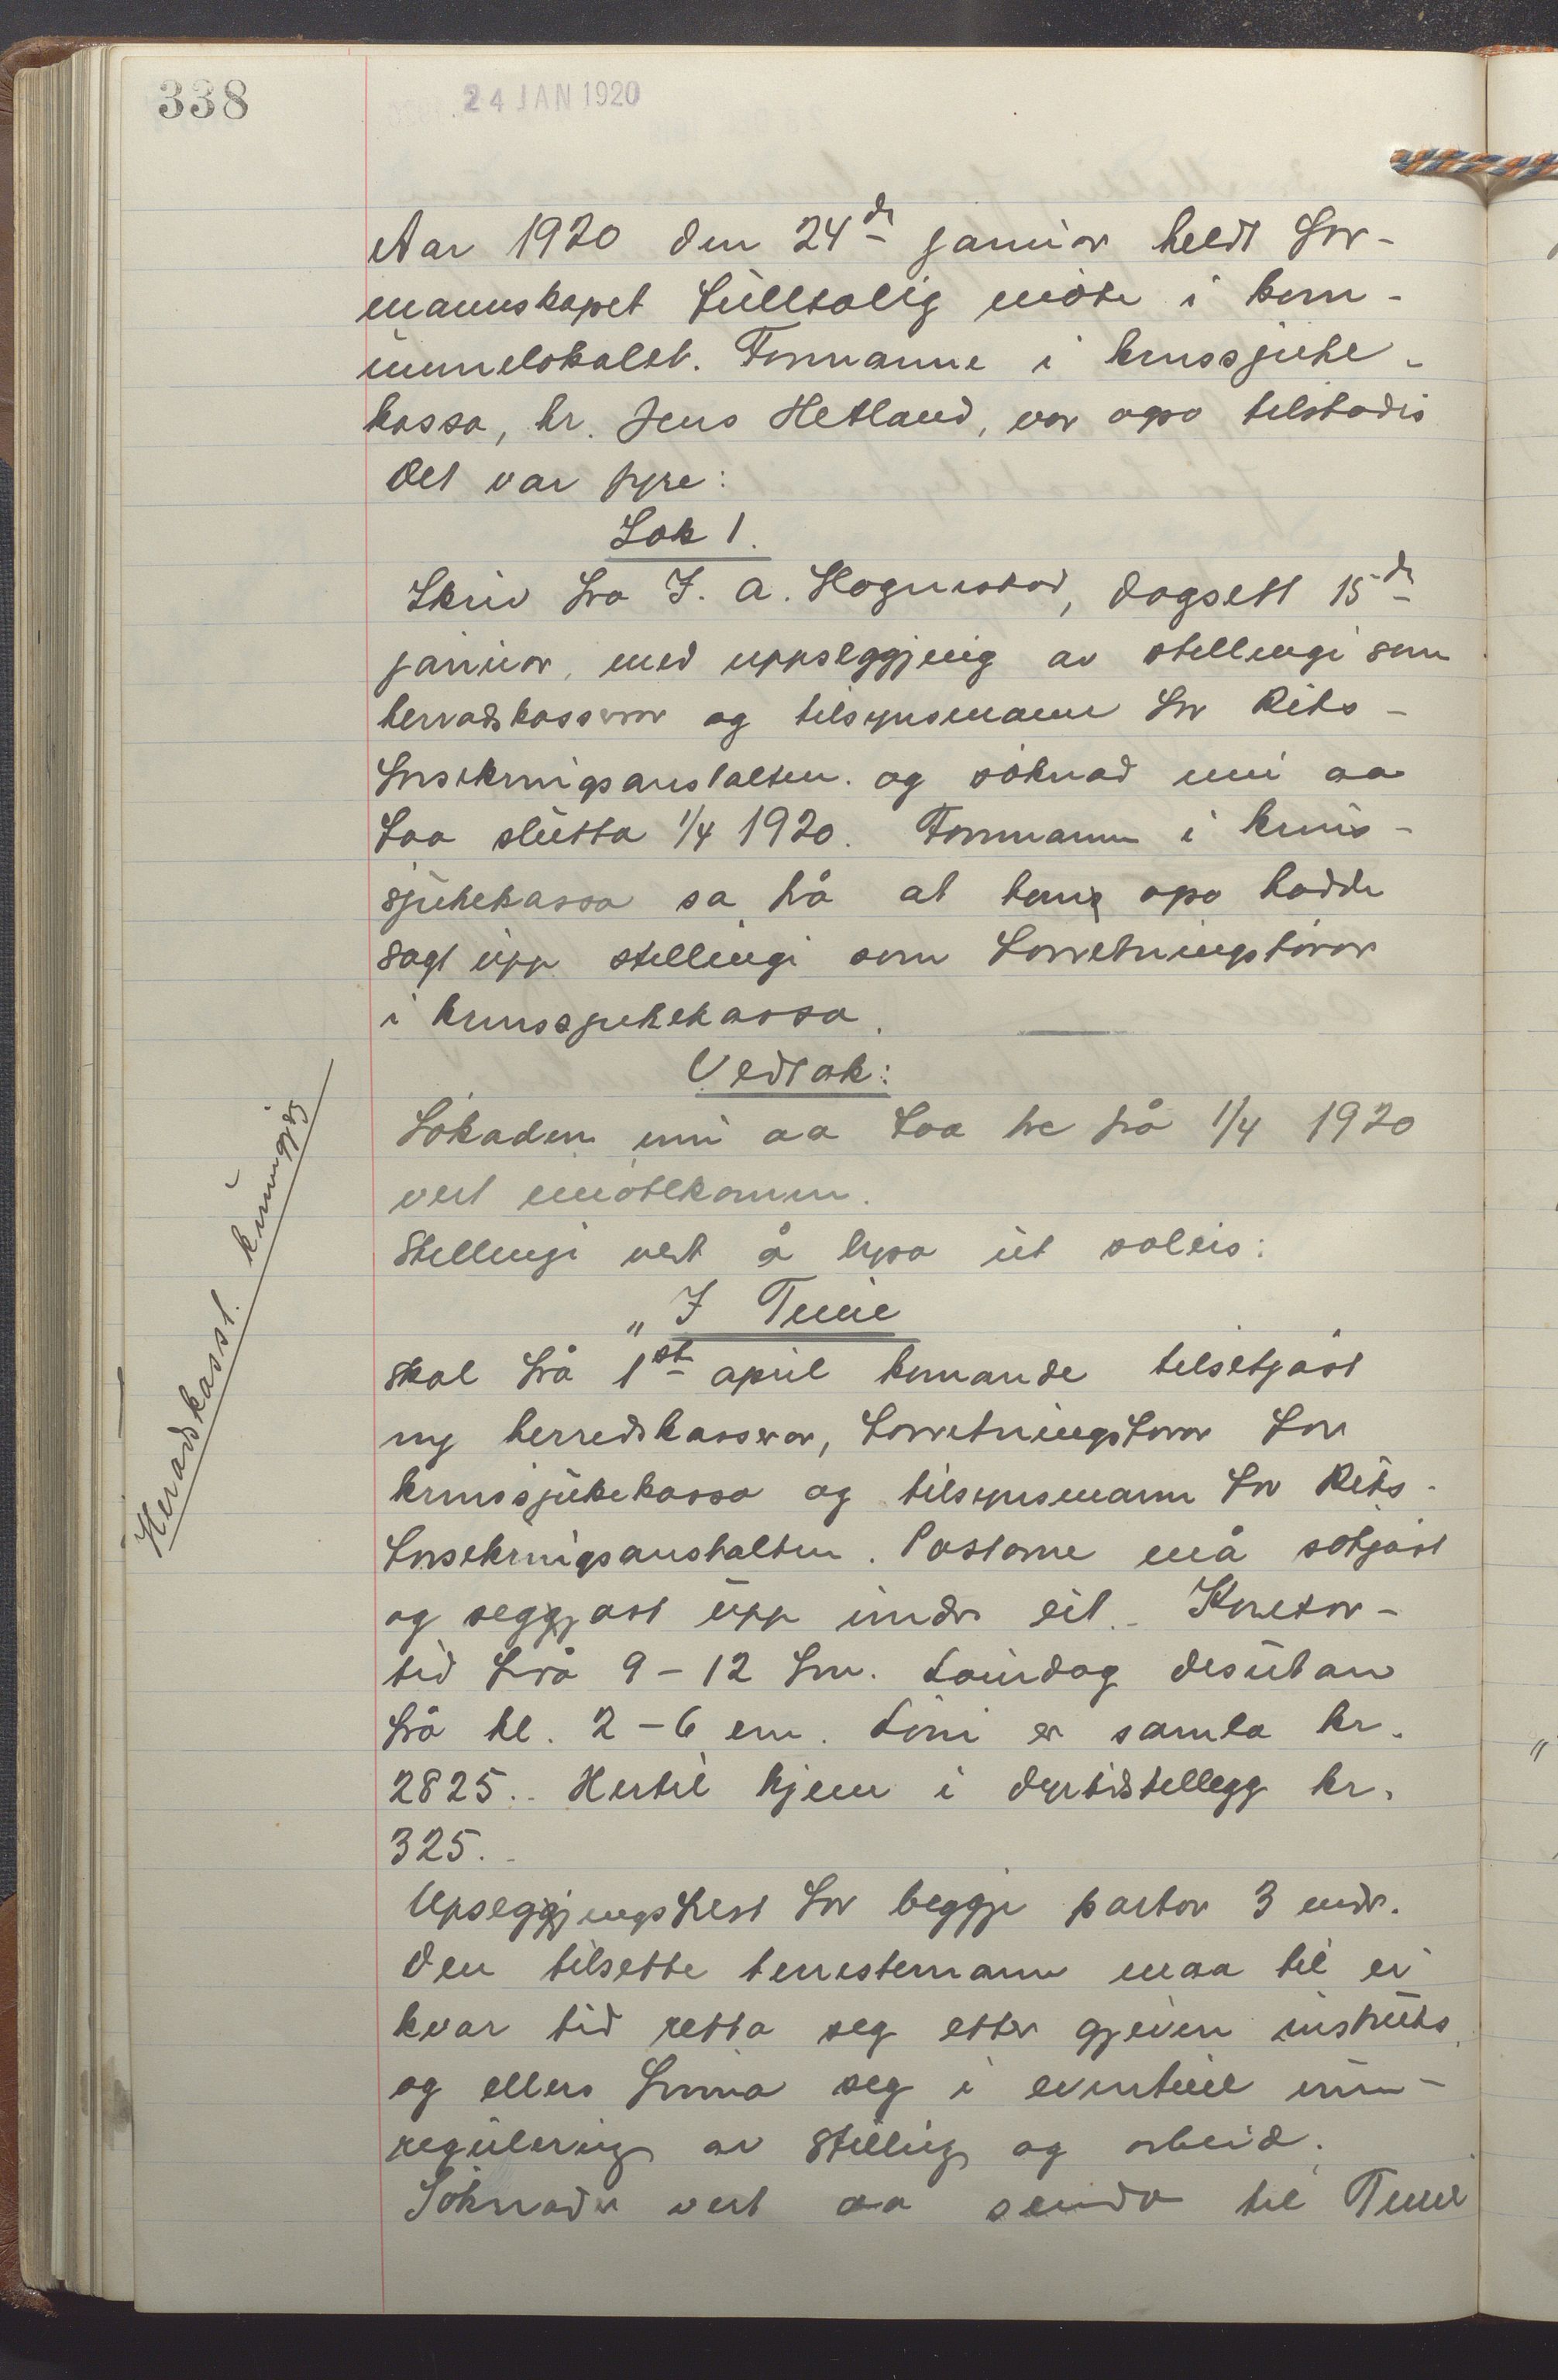 338
24 JAN 1920
Aar 1920 den 24de januar heldt for-
mannskapet fulltalig møte i kom-
munelokalet. Formannen i krinssjuke-
kassa, hr. Jens Hetland, var ogso tilstades
Det var fyre:
Sak 1.
Skriv fra J. A. Hognestad, dagsett 15de
januar, med uppseggjing av stellingi som
herradskasserar og tilsynsmann for Riks-
forsikringsanstalten. og søknad um aa
faa slutta 1/4 1920. Formannen i krins-
sjukekassa sa frå at han ogso hadde
sagt upp stellingi som forretningsförar
i krinssjukekassa.
Vedtak:
Søknaden um aa faa fre frå 1/4 1920
vert imøtekomen.
Stellingi vert å lysa ut soleis:
„I Time
skal frå 1st april komande tilsetjast
ny herredskasserar, forretningsförar for
krinssjukekassa og tilsynsmann for Riks-
forsikringsanstalten. Postarne må søkjast
og seggjast upp under eit. Kontor-
tid frå 9-12 fm. Laurdag desutan
frå kl. 2-6 em. Löni er samla kr.
2825.. Hertil kjem i dyrtidstillegg kr.
325..
Upseggjingsfrest for beggje partar 3 mdr.
Den tilsette tenestemann maa til ei
kvar tid retta seg etter gjeven instruks
og ellers finna seg i eventuel um-
regulering av stelling og arbeid.
Søknader vert aa senda til Time
Heradskass. st. kunngjöz